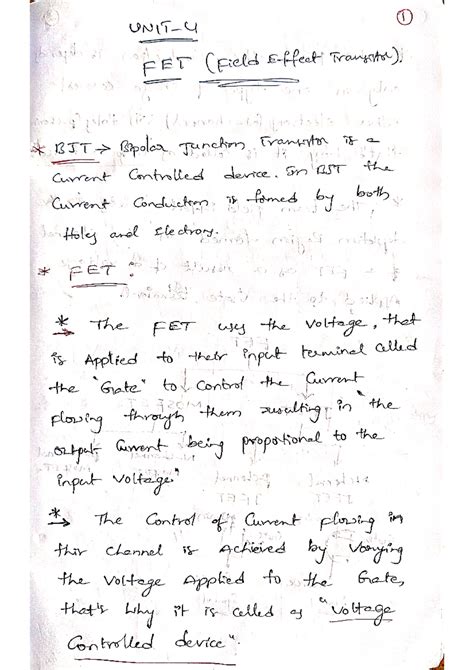 1
UNIT-4
FET (Field Effect Transistor).
* BJT → Bipolar Junction Transistor is a
Current Controlled device. In BJT the
Current Conduction is formed by both
Holes and Electrons.
* FET :
* The FET uses the Voltage, that
is Applied to their input terminal Called
the "Gate" to Control the Current
flowing through them resulting in "the
output Current being proportional to the
input Voltage."
* The Control of Current flowing in
this Channel is Achieved by Varying
the Voltage Applied to the Gate,
that's Why it is Called as "Voltage
Controlled device".